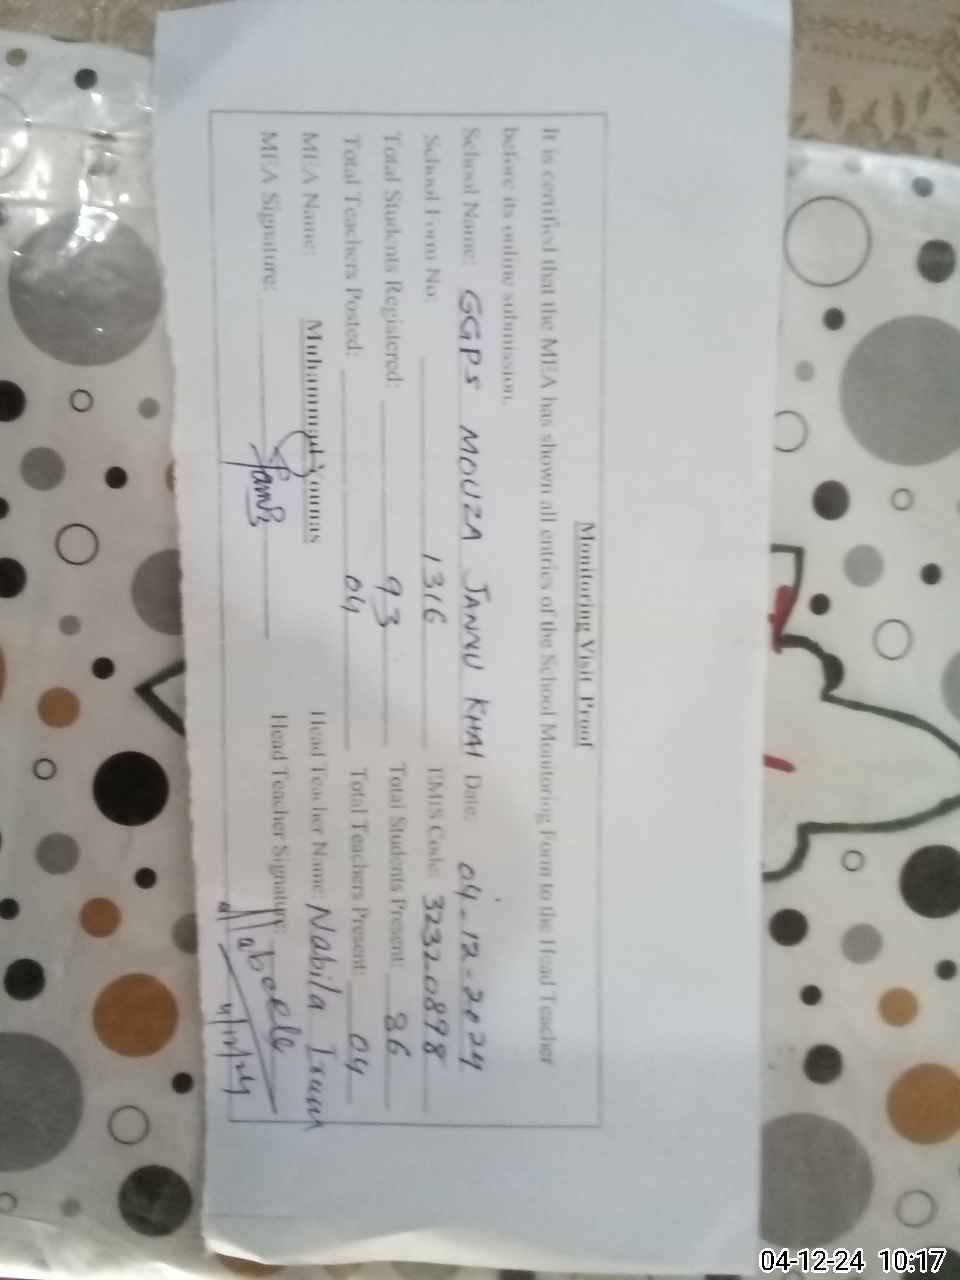 Monitoring Visit Proof
It is certified that the MEA has shown all entries of the School Monitoring Form to the Head Teacher
before its online submission.
School Name: GGPS MOUZA JANNU KHAI Date: 04-12-2024
School Form No: 1316 EMIS Code: 32320898
Total Students Registered: 93 Total Students Present: 86
Total Teachers Posted: 04 Total Teachers Present: 04
MEA Name: Muhammad Younas Head Teacher Name: Nabila Irum
MEA Signature: Head Teacher Signature:
4/12/24
04-12-24 10:17